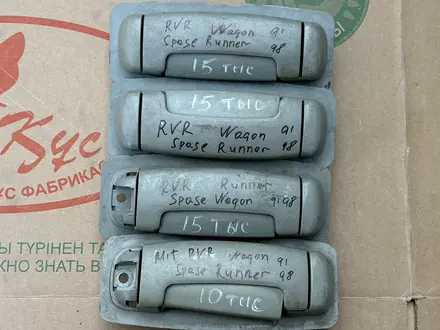 RVR Wagon 91
Spase Runner 98
15 тыс
15 тыс
RVR Wagon 91
Spase Runner 98
RVR Runner
Spase Wagon 91 98
15 тыс
Mit RVR Wagon 91
Spase Runner 98
10 тыс
Кус
УС ФАБРИКАС
Ы ТҮРІНЕН ТА
ЖНО ЗНАТЬ В